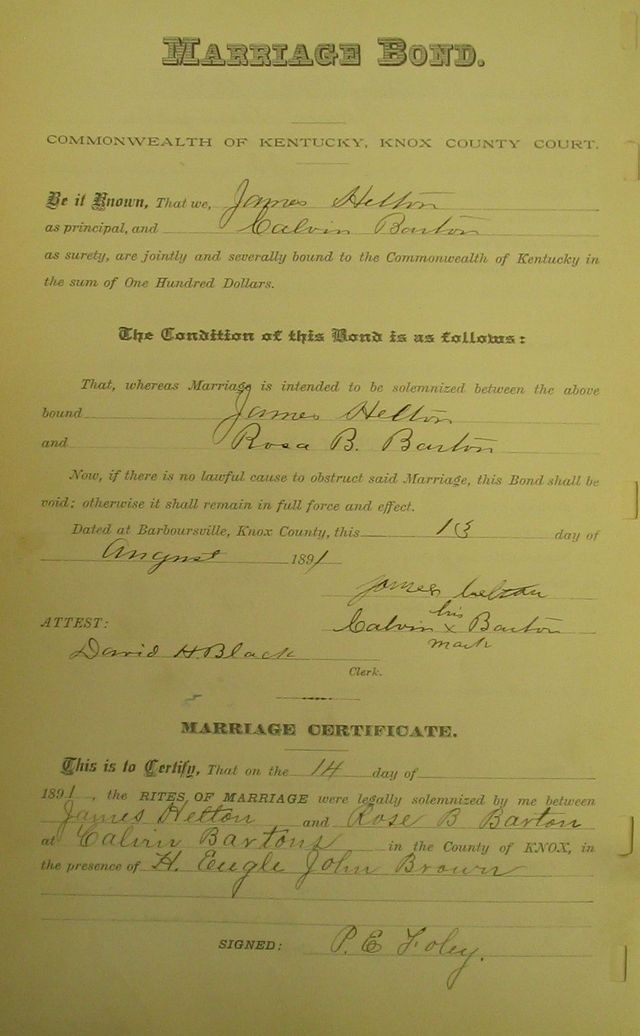 MARRIAGE BOND.
COMMONWEALTH OF KENTUCKY, KNOX COUNTY COURT.
Be it Known, That we, James Helton
as principal, and Calvin Barton
as surety, are jointly and severally bound to the Commonwealth of Kentucky in
the sum of One Hundred Dollars.
The Condition of this Bond is as follows:
That, whereas Marriage is intended to be solemnized between the above
bound James Helton
and Rosa B. Barton
Now, if there is no lawful cause to obstruct said Marriage, this Bond shall be
void; otherwise it shall remain in full force and effect.
Dated at Barboursville, Knox County, this 13 day of
August 1891
James Helton
his
ATTEST: Calvin x Barton
mark
David H. Black
Clerk.
MARRIAGE CERTIFICATE.
This is to Certify, That on the 14 day of
1891, the RITES OF MARRIAGE were legally solemnized by me between
James Helton and Rose B Barton
at Calvin Bartons in the County of KNOX, in
the presence of H. Eugle John Brown
SIGNED: P. E Foley.